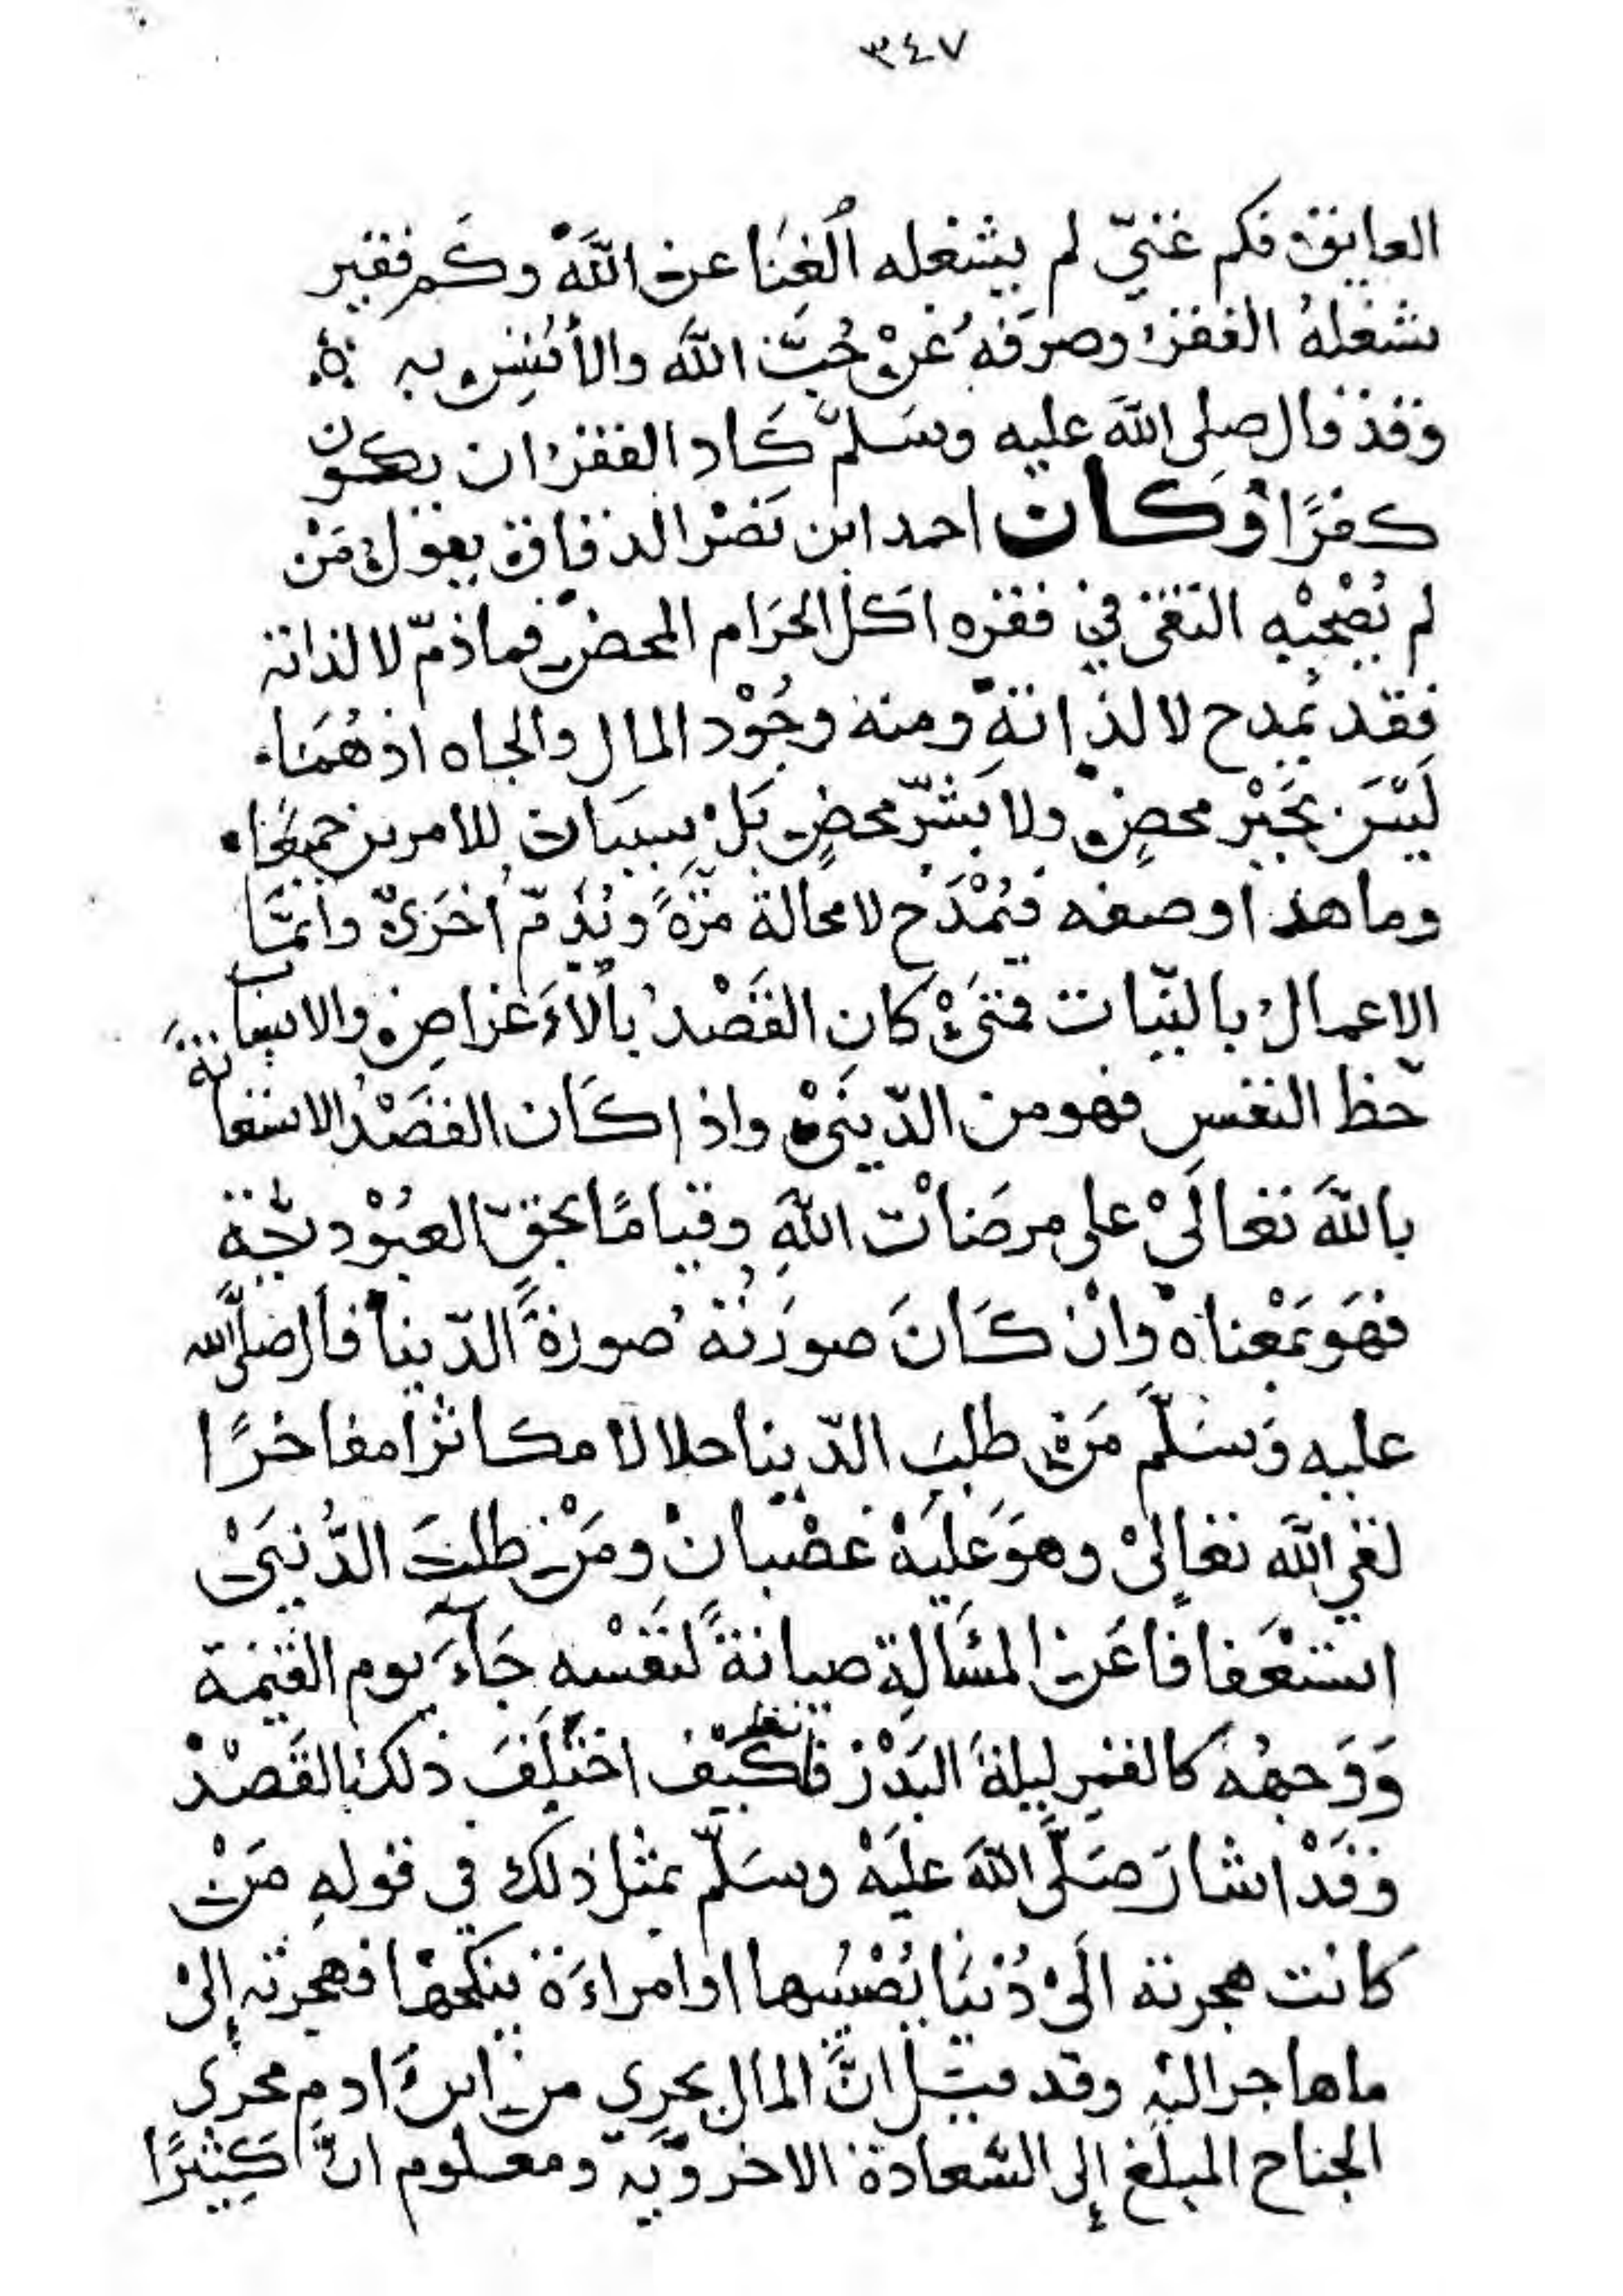 ٣٤٧
العايق فكم غنيّ لم يشغله الْغِنَا عن اللَّه وكَم فقير
شغلهُ الفقر وصرَفهُ عَنْ حُبّ اللَّه والأُنْسِ به
وَقد قال صلى اللَّه عليه وسَلمَّ كَاد الفقرُ ان يكون
كفرًا وَكان احمد ابن نَصْر الدقاق يقول مَنْ
لم يُصْحبْه التقى في فقره اكل الحرَام المحض فما ذمّ لا لذاته
فقد يُمدح لا لذاتهِ ومنه وجُوْد المال والجاه اذ هُمَا
لَيْسَ بخَيْر محضٍ ولا بَشرّ محضٍ بَلْ سببَان للامرين جميعًا
وما هذا وصفه فيُمْدَح لا محالة مرّةً ويُذمّ اُخرَى وانَّما
الاعمالُ بالنيّات فمتَى كان القَصْدُ بالاَغراضِ والاستعانة
حَظ النفسِ فهو من الدّنيَى واذا كَان القَصْدُ الاستعا
باللَّه تعالَىْ على مرضَاتْ اللَّهِ وقيامًا بحقّ العبُوْديّة
فهَو بمَعْناهْ وانْ كَانَ صورَتُهُ صورةَ الدّنيا قال صلىّ الله
عليه وَسَلّمَ مَنْ طلبَ الدّنيا حلالا مكاثرا مفاخرًا
لقي اللَّه تعالىْ وهوَ عَليَهْ غضْبانْ ومَنْ طلبَ الدُّنيَىْ
استعْفافا عَن المسَالةِ صيانةً لنَفْسه جَآءَ يوم القيمَة
وَوَجههُ كالقمرِ ليلةَ البَدْرْ فانظر كَيْف اختلَفَ ذلك بالقَصْدْ
وَقَدْ اشارَ صَلَّى اللَّه عليَهْ وسَلّم بمثل ذلك في قولهِ مَنْ
كانت هجرته الَىْ دُنيَا يُصْيبُها او امراءَة ينكحها فهجرته إلىْ
ما هاجر اليْهِ وقد قيَل انَّ المال يجري من ابن اَدم مجرى
الجناح المبلغ إلى السَّعادة الاخرويّه ومعلوم انَّ كَثيرًا